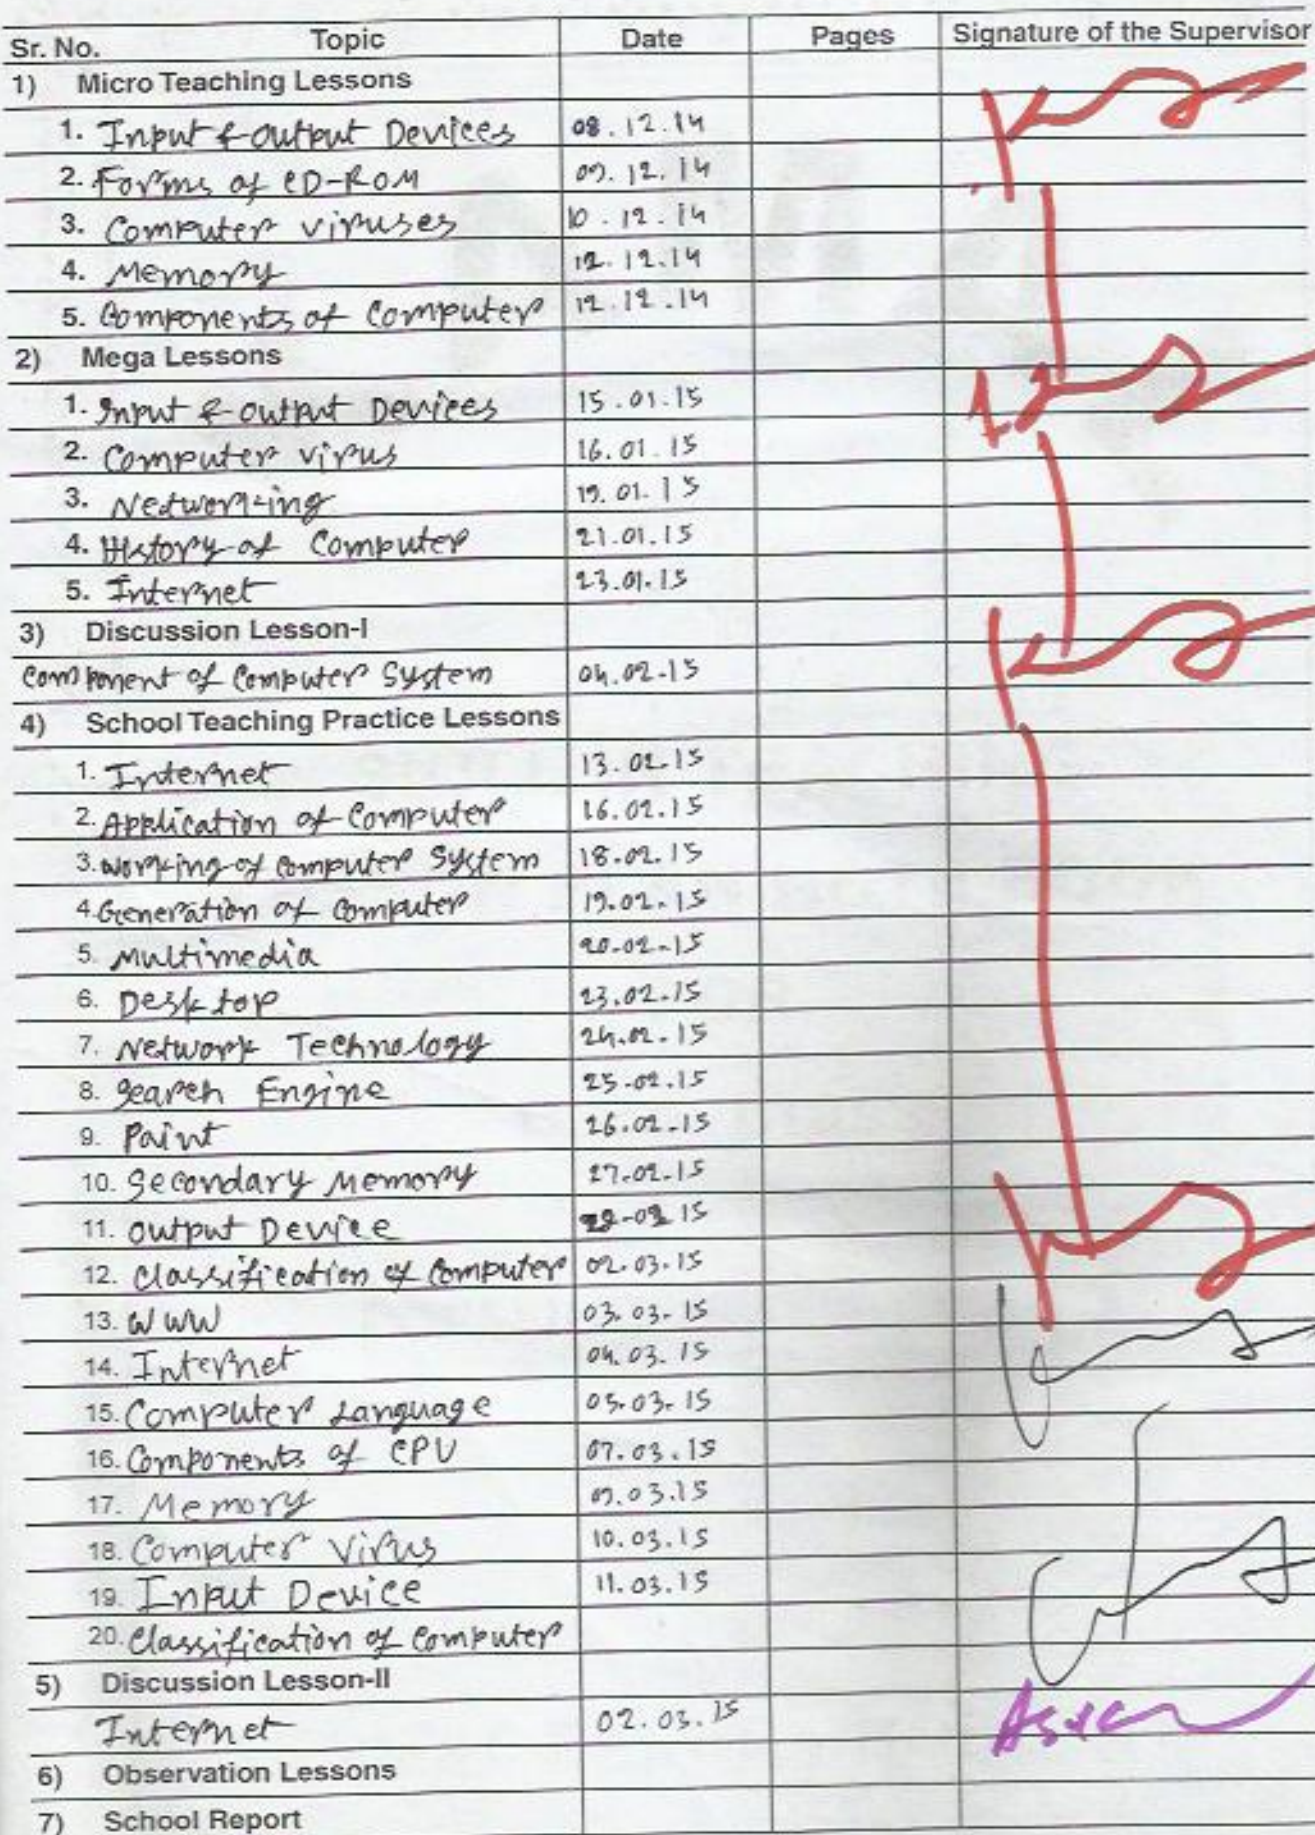 Sr. No. Topic Date Pages Signature of the Supervisor
1) Micro Teaching Lessons
1. Input & output Devices 08.12.14
2. Forms of CD-ROM 09.12.14
3. Computer viruses 10.12.14
4. Memory 12.12.14
5. Components of Computer 12.12.14
2) Mega Lessons
1. Input & output Devices 15.01.15
2. Computer virus 16.01.15
3. Networking 19.01.15
4. History of Computer 21.01.15
5. Internet 23.01.15
3) Discussion Lesson-I
Component of Computer System 04.02.15
4) School Teaching Practice Lessons
1. Internet 13.02.15
2. Application of Computer 16.02.15
3. Working of Computer System 18.02.15
4. Generation of Computer 19.02.15
5. Multimedia 20-02-15
6. Desktop 23.02.15
7. Network Technology 24.02.15
8. Search Engine 25.02.15
9. Paint 26.02.15
10. Secondary Memory 27.02.15
11. Output Device
12. Classification of Computer 02.03.15
13. WWW 03.03.15
14. Internet 04.03.15
15. Computer Language 05.03.15
16. Components of CPU 07.03.15
17. Memory 09.03.15
18. Computer Virus 10.03.15
19. Input Device 11.03.15
20. Classification of Computer
5) Discussion Lesson-II
Internet 02.03.15
6) Observation Lessons
7) School Report